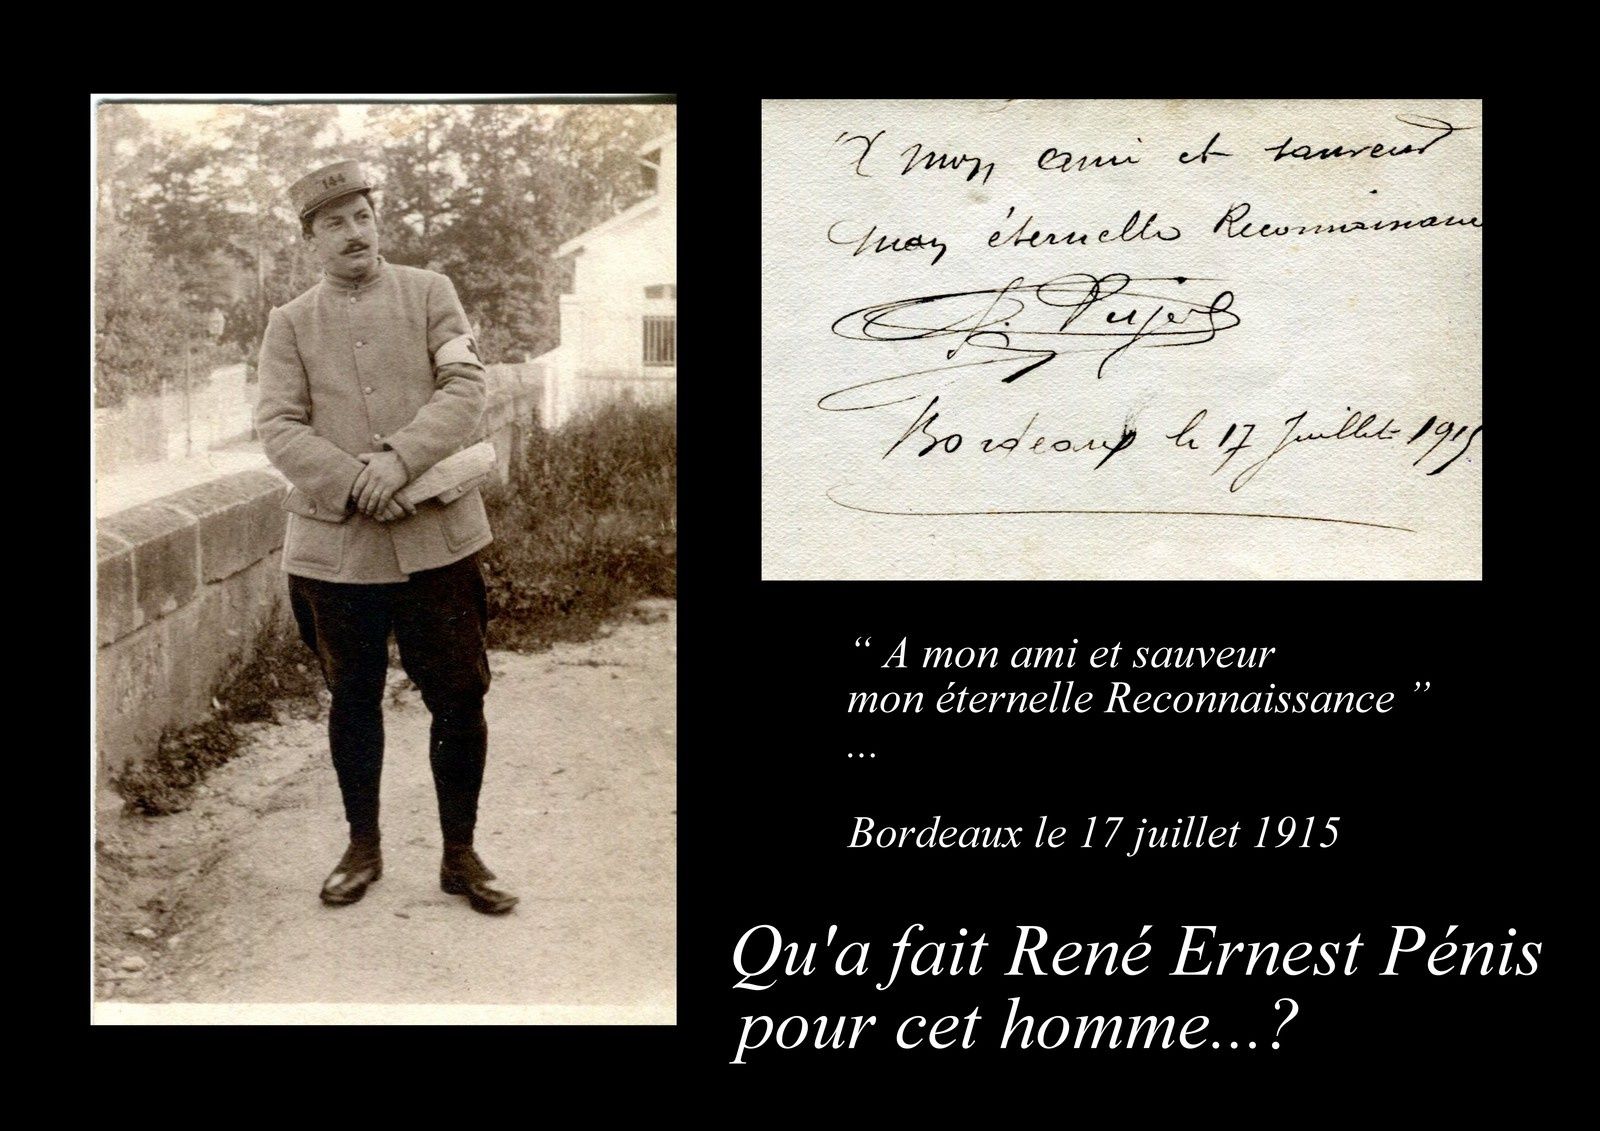 144
A mon ami et sauveur
mon éternelle Reconnaissance
Pujol
Bordeaux le 17 Juillet 1915
“ A mon ami et sauveur
mon éternelle Reconnaissance ”
...
Bordeaux le 17 juillet 1915
Qu'a fait René Ernest Pénis
pour cet homme...?